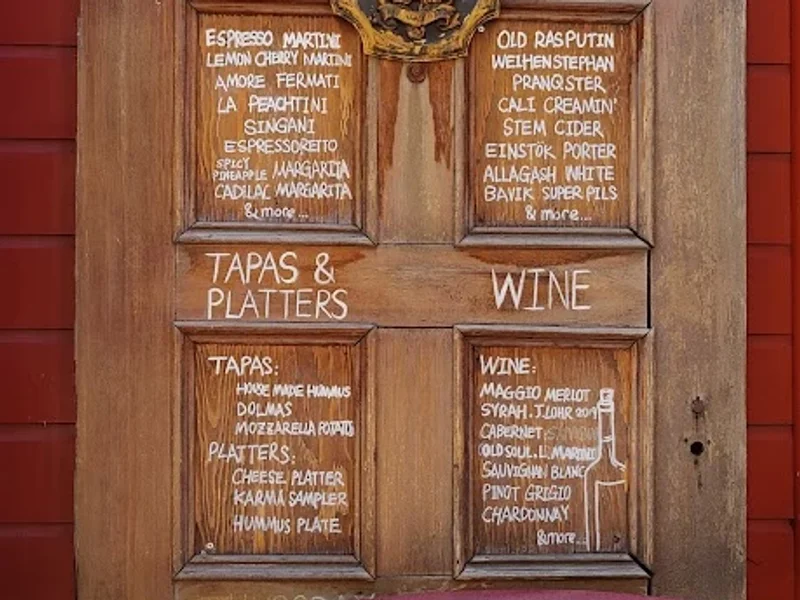 ESPRESSO MARTINI
LEMON CHERRY MARTINI
AMORE FERMATI
LA PEACHTINI
SINGANI
ESPRESSORETTO
SPICY PINEAPPLE MARGARITA
CADILLAC MARGARITA
& more...
OLD RASPUTIN
WEIHENSTEPHAN
PRANQSTER
CALI CREAMIN'
STEM CIDER
EINSTÖK PORTER
ALLAGASH WHITE
BAVIK SUPER PILS
& more...
TAPAS &
PLATTERS
WINE
TAPAS:
HOUSE MADE HUMMUS
DOLMAS
MOZZARELLA POTATO
PLATTERS:
CHEESE PLATTER
KARMA SAMPLER
HUMMUS PLATE
WINE:
MAGGIO MERLOT
SYRAH. J. LOHR 2019
CABERNET:
OLD SOUL. L. MARTINI
SAUVIGNAN BLANC
PINOT GRIGIO
CHARDONNAY
& more...